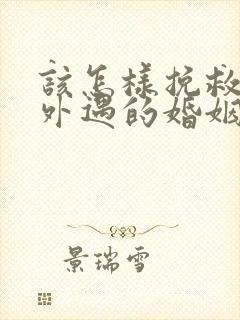 該怎樣挽救
外遇的婚姻
景瑞雪